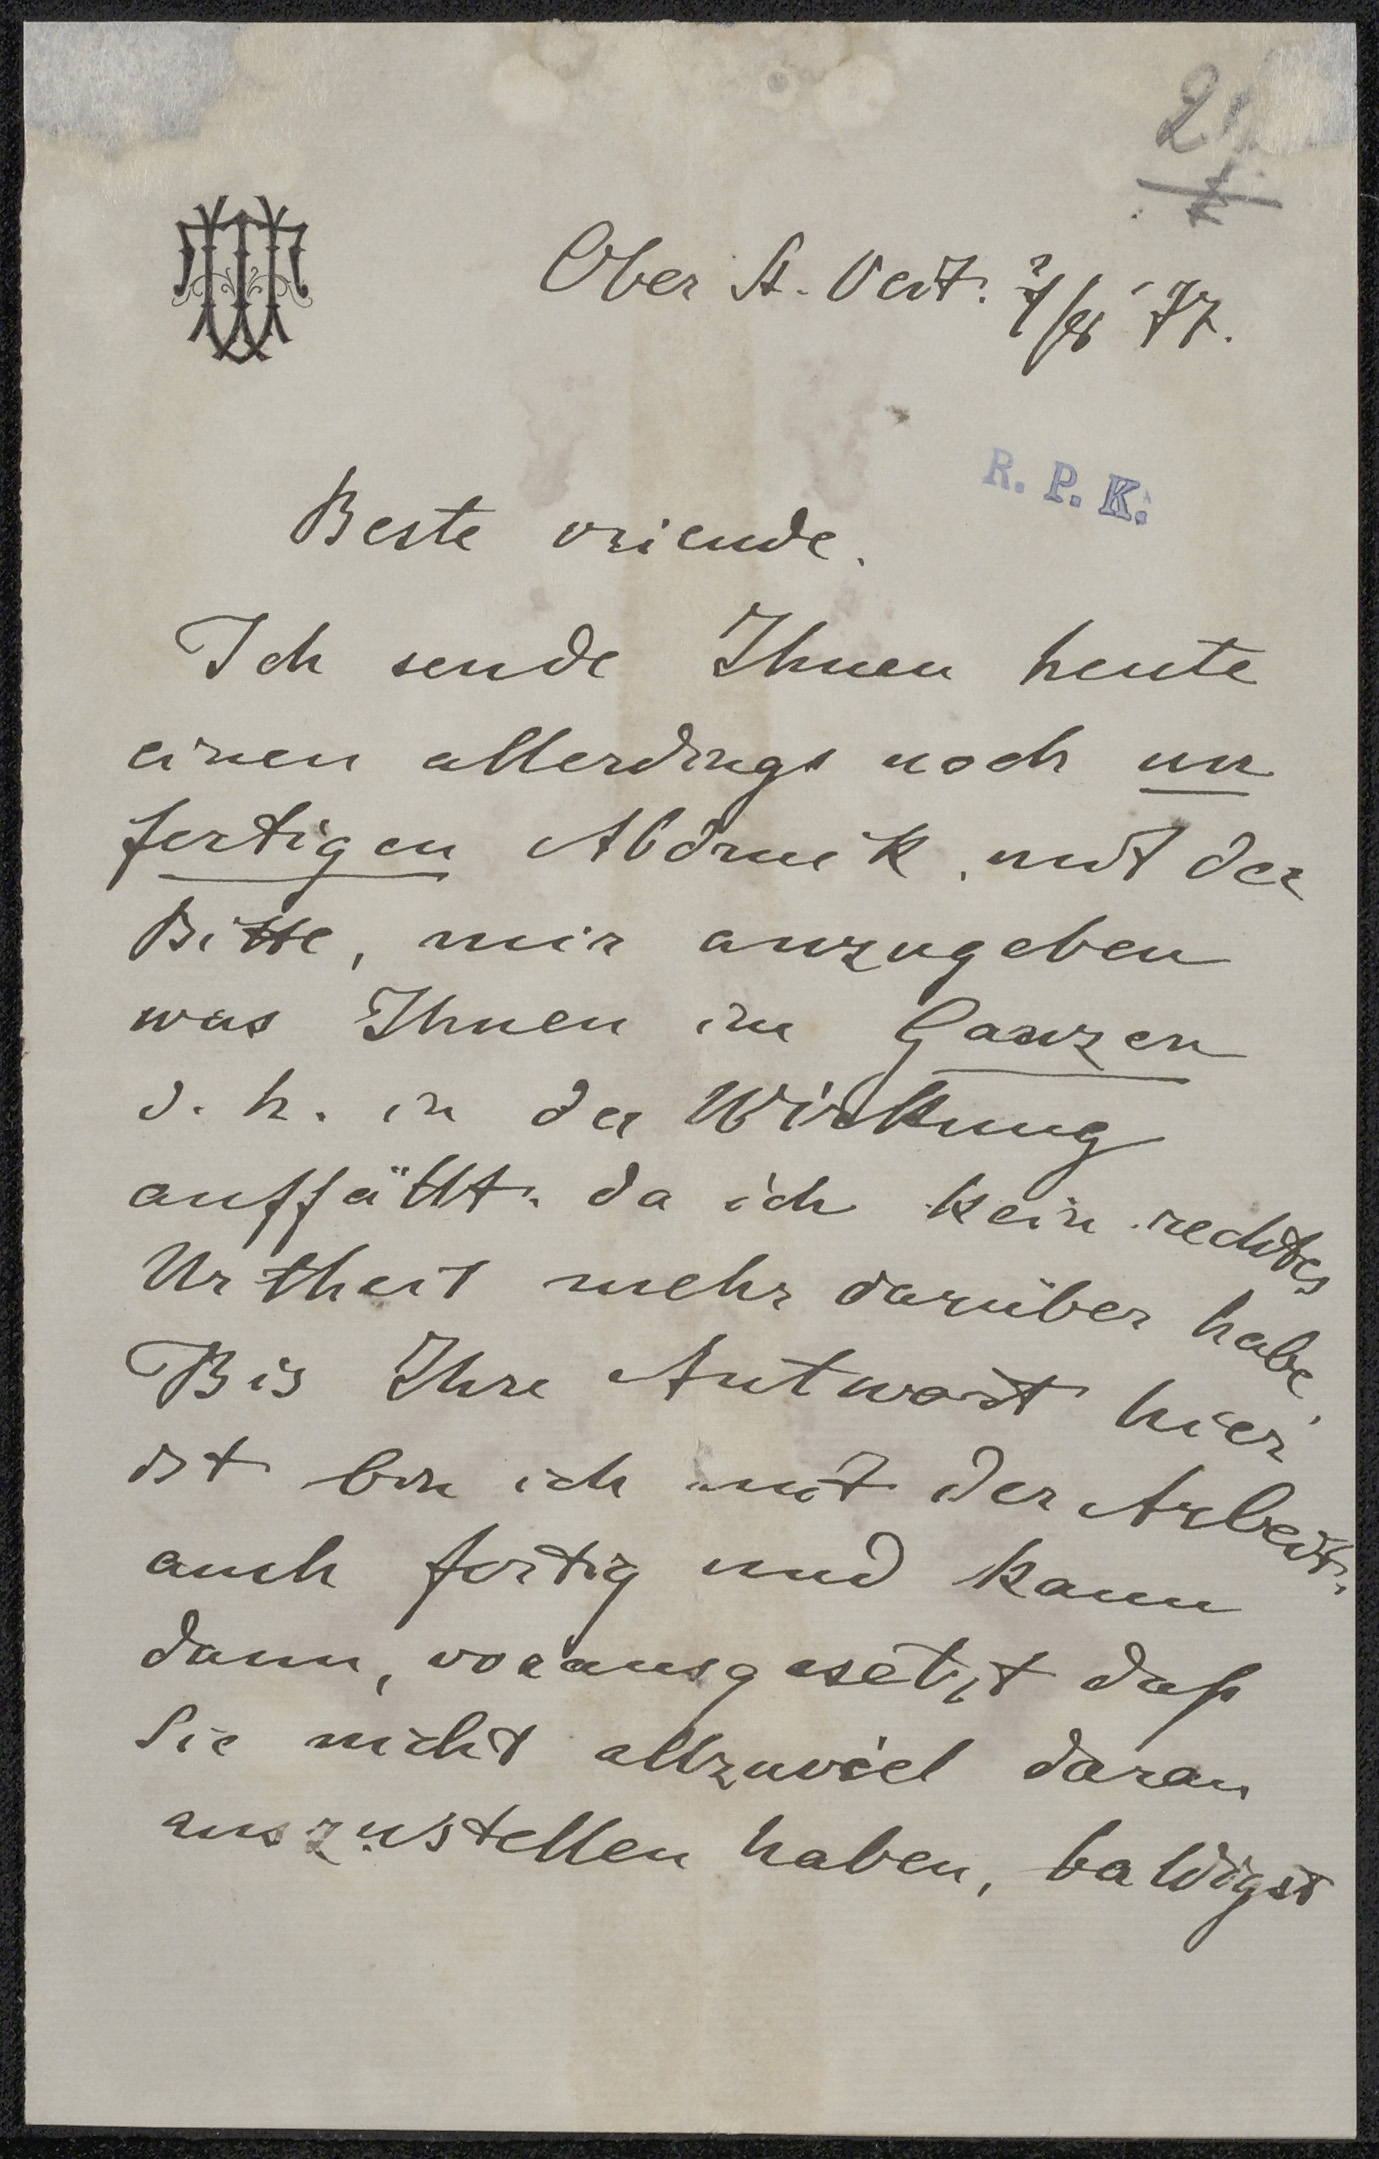 21
Ober St. Veit. '77.
R. P. K.
Beste vriende.
Ich sende Ihnen heute
einen allerdings noch un
fertigen Abdruck, mit der
Bitte, mir anzugeben
was Ihnen im Ganzen
d. h. in der Wirkung
auffällt. da ich kein rechtes
Urtheil mehr darüber habe.
Bis Ihre Antwort hier
ist bin ich mit der Arbeit
auch fertig und kann
dann, vorausgesetzt daß
Sie nicht allzuviel daran
auszustellen haben, baldigst